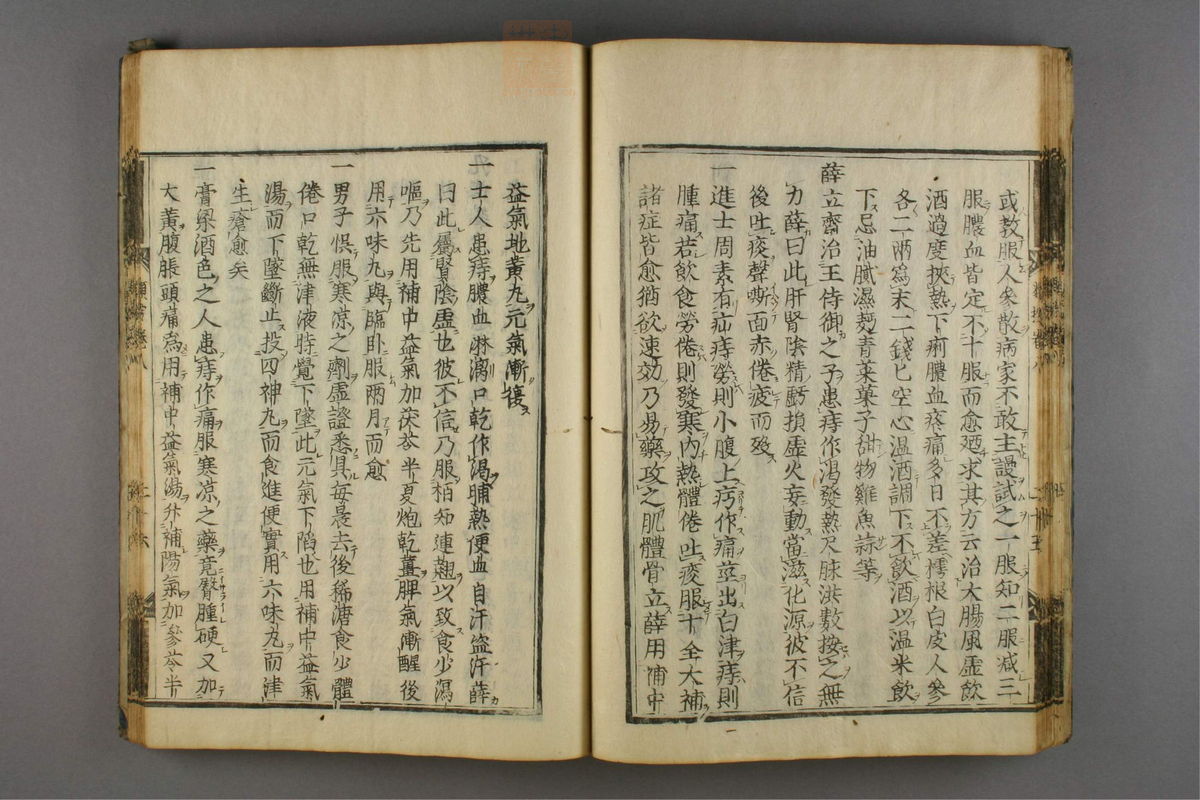 或教服人參散病家不敢主謾試之一服知二服减三
服膿血皆定不十服而愈廼求其方云治大腸風虛飲
酒過度挾熱下痢膿血疼痛多日不差樗根白皮人參
各二兩爲末二錢匕空心温酒調下不飲酒以温米飲
下忌油膩濕麪青菜菓子甜物雞魚蒜等
薛立齋治王侍御之子患痔作渴發熱尺脉洪數按之無
力薛曰此肝腎陰精虧損虛火妄動當滋化源彼不信
後吐痰聲嘶面赤倦疲而歿
一進士周素有疝痔勞則小腹上㽲作痛莖出白津痔則
腫痛若飲食勞倦則發寒内熱體倦吐痰服十全大補
諸症皆愈猶欲速効乃易藥攻之肌體骨立薛用補中
益氣地黄丸元氣漸復
一士人患痔膿血淋漓口乾作渴晡熱便血自汗盗汗薛
曰此屬腎陰虛也彼不信乃服栢知連翹以致食少瀉
嘔乃先用補中益氣加茯苓半夏炮乾薑脾氣漸醒後
用六味丸與臨卧服兩月而愈
一男子惧服寒凉之劑虛證悉具每晨去後稀溏食少體
倦口乾無津液時覺下墜此元氣下陷也用補中益氣
湯而下墜斷止投四神丸而食進便實用六味丸而津
生瘡愈矣
一膏梁酒色之人患痔作痛服寒凉之藥竟臀腫硬又加
大黄腹脹頭痛爲用補中益氣湯升補陽氣加參苓半